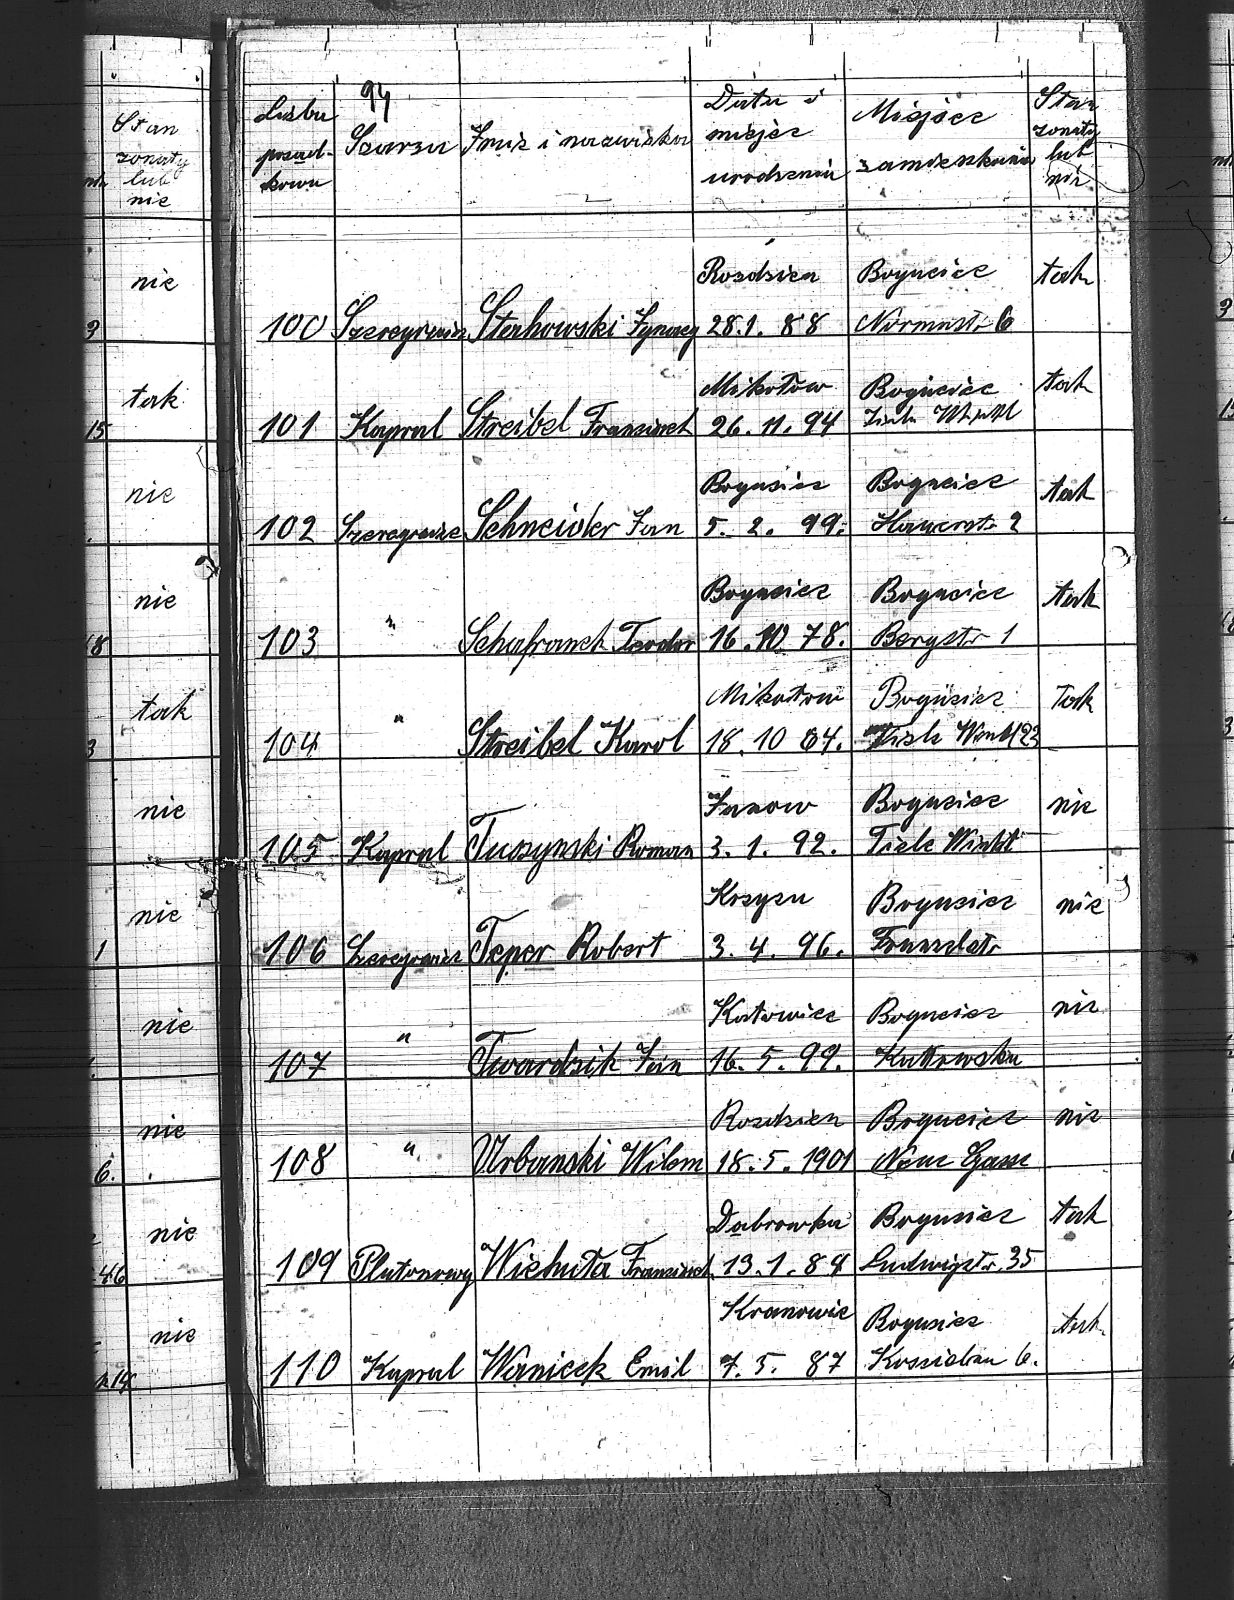 Stan
zonaty
lub
nie
nie
9
tak
15
nie
nie
18
tak
3
nie
nie
1
nie
nie
6.
nie
46
nie
94
Liczba porząd- kowa | Szarza | Imie i nazwisko | Data i miejsc urodzenia | Miejsce zamieszkania | Stan zonaty lub nie
Rozdzien Bogucice tak
100 Szeregowiec Stachowski Ignacy 28.1.88 Normastr 6
Mikołow Bogucice tak
101 Kapral Streibel Franciszek 26.11.94 Tiele
Bogucice Bogucice tak
102 Szeregowiec Schneider Jan 5.2.99. 2
Bogucice Bogucice tak
103 " Schafranek Teodor 16.10 78. Bergstr 1
Mikołow Bogucice Tak
104 " Streibel Karol 18.10 64. Tiele 23
Janow Bogucice nie
105 Kapral Tuszynski Roman 3.1.92. Tiele Winkl
Bogucice nie
106 Szeregowiec Teper Robert 3.4.96.
Katowice Bogucice nie
107 " Twardzik Jan 16.5.99. Kattowska
Rozdzien Bogucice nie
108 " Urbanski Wilem 18.5.1901 Neue Gasse
Dabrowka Bogucice tak
109 Plutonowy Wiechuta Franciszek 13.1.88 Ludwigstr. 35
Kranowic Bogucice tak.
110 Kapral Wanicek Emil 7.5.87 6.